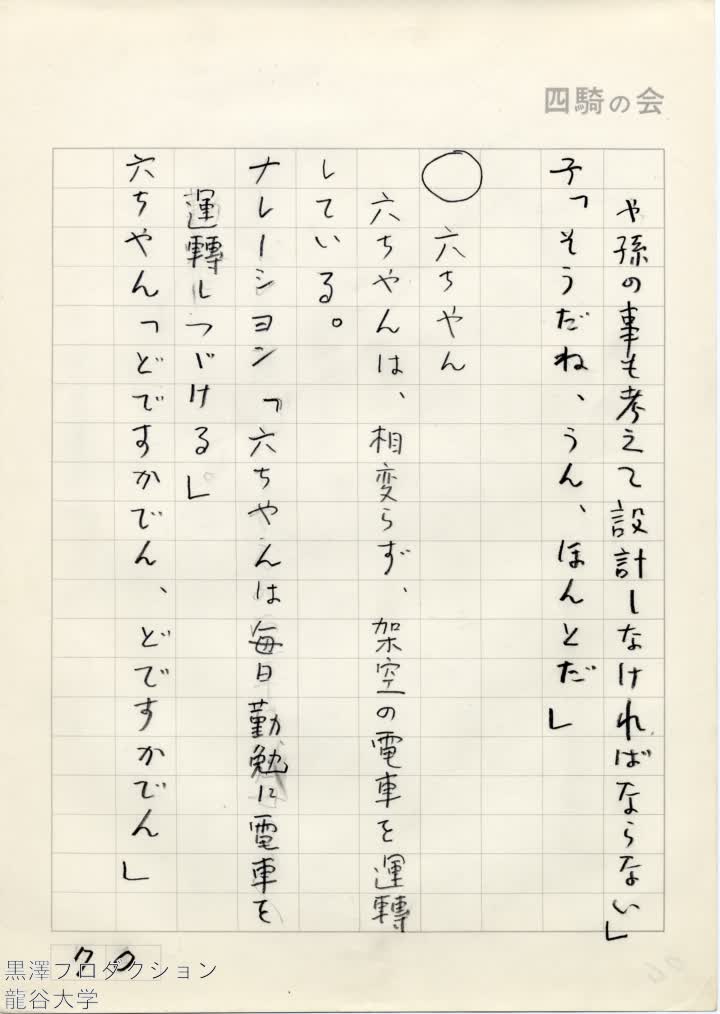 四騎の会
や孫の事も考えて設計しなければならない」
子「そうだね、うん、ほんとだ」
○　六ちゃん
六ちゃんは、相変らず、架空の電車を運轉
している。
ナレーション「六ちゃんは毎日勤勉に電車を
運轉しつづける」
六ちゃん「どですかでん、どですかでん」
70
黒澤プロダクション
龍谷大学